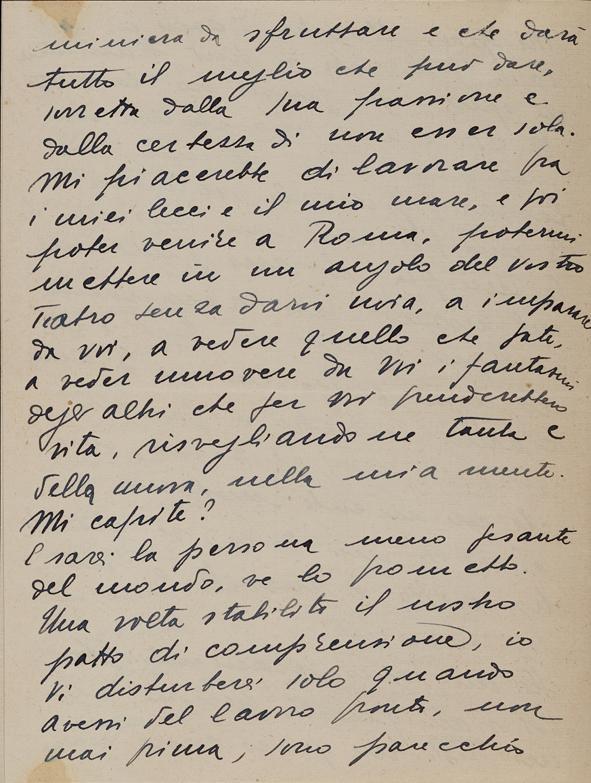 miniera da sfruttare e che darà
tutto il meglio che può dare,
sorretta dalla sua passione e
dalla certezza di non esser sola.
Mi piacerebbe di lavorare fra
i miei lecci e il mio mare, e poi
poter venire a Roma, potermi
mettere in un angolo del vostro
Teatro senza darvi noia, a imparare
da voi, a vedere quello che fate,
a veder muovere da voi i fantasmi
degli altri che per voi prenderebbero
vita, risvegliandone tanta e
della nuova, nella mia mente.
Mi capite?
E sarei la persona meno pesante
del mondo, ve lo prometto.
Una volta stabilito il nostro
patto di comprensione, io
vi disturberei solo quando
avessi del lavoro pronto, non
mai prima, sono parecchio